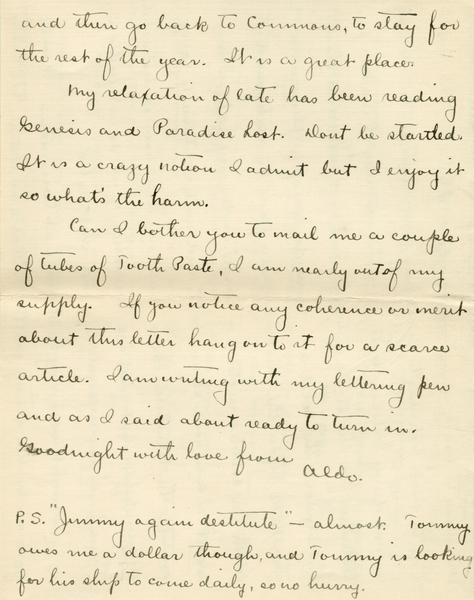 and then go back to Commons, to stay for
the rest of the year. It is a great place.
My relaxation of late has been reading
Genesis and Paradise Lost. Dont be startled.
It is a crazy notion I admit but I enjoy it
so what's the harm.
Can I bother you to mail me a couple
of tubes of Tooth Paste, I am nearly out of my
supply. If you notice any coherence or merit
about this letter hang on to it for a scarce
article. I am writing with my lettering pen
and as I said about ready to turn in.
Goodnight with love from
Aldo.
P.S. "Jimmy again destitute" - almost. Tommy
owes me a dollar though, and Tommy is looking
for his ship to come daily, so no hurry.